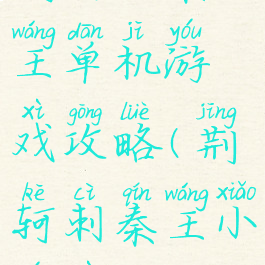 wáng dān jī yóu
王单机游
xì gōng lüè jīng
戏攻略(荆
kē cì qín wáng xiǎo
轲刺秦王小